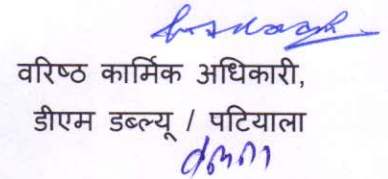 वरिष्ठ कार्मिक अधिकारी,
डीएम डब्ल्यू / पटियाला